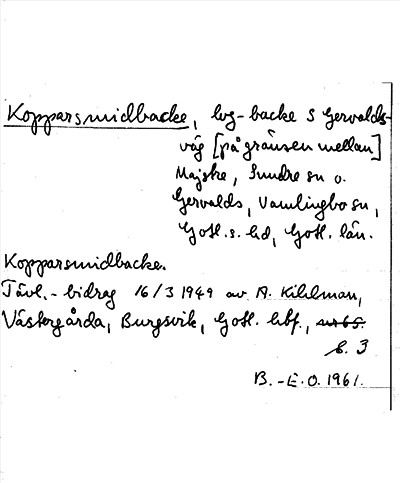 Kopparsmidbacke, lvg-backe S Gervalds-
väg [på gränsen mellan]
Majske, Sundre sn o.
Gervalds, Vamlingbo sn,
Gotl. s. hd, Gotl. län.
Kopparsmidbacke.
Tävl.-bidrag 16/3 1949 av A. Kihlman,
Västergårda, Burgsvik, Gotl. hbf.,
s. 3
B.-E.O. 1961.